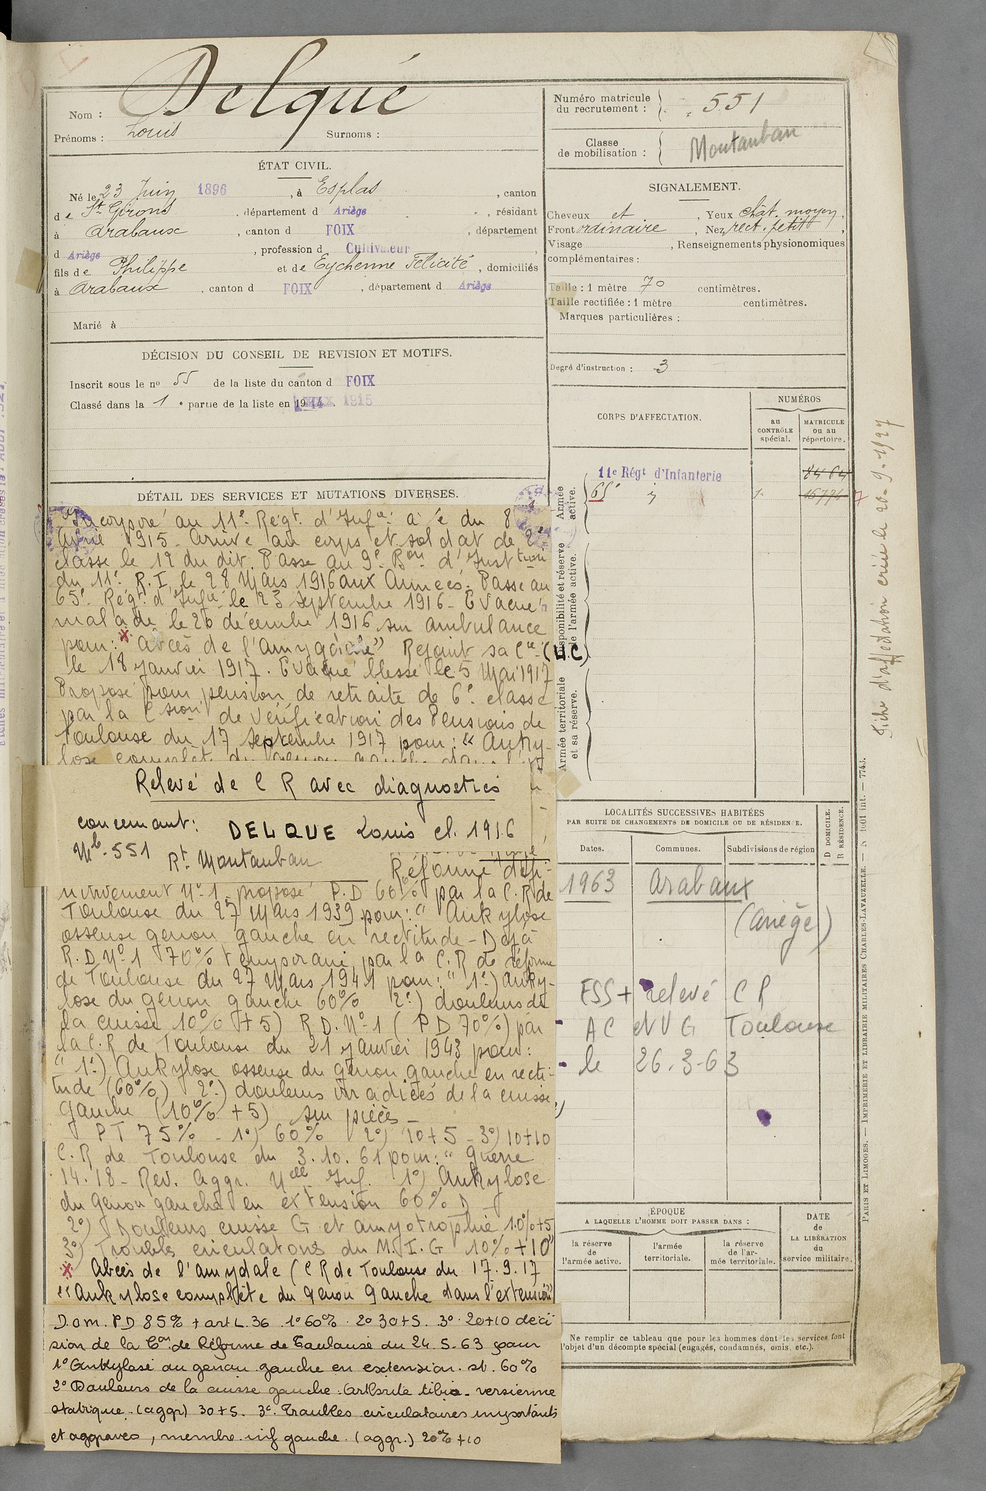 Nom : Delqué
Prénoms : Louis Surnoms :
ÉTAT CIVIL.
Né le 23 Juin 1896, à Esplas, canton
d e St Girons, département d Ariège, résidant
à Arabaux, canton d FOIX, département
d Ariège, profession d Cultivateur
fils de Philippe et de Eychenne Félicité, domiciliés
à Arabaux, canton d FOIX, département d Ariège
Marié à
DÉCISION DU CONSEIL DE REVISION ET MOTIFS.
Inscrit sous le no 55 de la liste du canton d FOIX
Classé dans la 1e partie de la liste en 1915
Numéro matricule du recrutement : 551
Classe de mobilisation : Montauban
SIGNALEMENT.
Cheveux et, Yeux chât. moyen,
Front ordinaire, Nez rect. petit,
Visage, Renseignements physionomiques
complémentaires :
Taille : 1 mètre 70 centimètres.
Taille rectifiée : 1 mètre centimètres.
Marques particulières :
Degré d'instruction : 3
CORPS D'AFFECTATION.
NUMÉROS
au CONTRÔLE spécial.
MATRICULE ou au répertoire.
Armée active.
11e Régt d'Infanterie 8464
65e 〃
Disponibilité et réserve de l'armée active.
Armée territoriale et sa réserve.
DÉTAIL DES SERVICES ET MUTATIONS DIVERSES.
Incorporé au 11e Régt d'Infie à c/ du 8
avril 1915. Arrivé au corps et soldat de 2e
classe le 12 du dit. Passé au 9e Bon d'Instron
du 11e R.I. le 28 Mars 1916 aux Armées. Passé au
65e Régt d'Infie le 23 septembre 1916 - Evacué
malade le 26 décembre 1916 sur ambulance
pour: * "Abcès de l'amygdale" Rejoint sa Cie (U.C)
le 18 janvier 1917. Evacué blessé le 5 Mai 1917
Proposé pour pension de retraite de 6e classe
par la Csion de Vérification des Pensions de
Toulouse du 17 septembre 1917 pour: "Anky-
lose complète du genou gauche dans l'
Relevé de C R avec diagnostics
concernant: DELQUE Louis cl. 1916
Mle 551 Rt Montauban
Réforme défi-
nitivement No 1 proposé P.D 60% par la C.R de
Toulouse du 27 Mars 1939 pour: "Ankylose
osseuse genou gauche en rectitude - Déjà
R.D No 1 70% temporaire par la C.R de réforme
de Toulouse du 27 Mars 1941 pour: "1°) Anky-
lose du genou gauche 60% 2°) douleurs de
la cuisse 10% +5) R.D. No 1 (PD 70%) par
la C.R de Toulouse du 21 janvier 1943 pour:
"1°) Ankylose osseuse du genou gauche en recti-
tude (60%) 2°) douleurs irradiées de la cuisse
gauche (10% +5) sur pièces -
PT 75% - 1°) 60% 2°) 10+5 - 3°) 10+10
C.R de Toulouse du 3.10.61 pour: "Guerre
14.18 - Rev. Aggr. Nelle Inf. 1°) Ankylose
du genou gauche en extension 60% D
2°) Douleurs cuisse G et amyotrophie 10%+5
3°) Troubles circulatoires du M.I.G 10%+10"
* Abcès de l'amydale (CR de Toulouse du 17.9.17
"Ankylose complète du genou gauche dans l'extension"
Dom. PD 85% + art L.36 1° 60% 2° 30+5. 3° 20+10 déci
sion de la Con de Réforme de Toulouse du 24.5.63 pour
1° Ankylose du genou gauche en extension. st. 60%
2° Douleurs de la cuisse gauche. Arthrite tibio-
statique. (aggr) 30+5. 3° Troubles circulatoires importants
et aggravés, membre inf gauche. (aggr.) 20% +10
LOCALITÉS SUCCESSIVES HABITÉES
PAR SUITE DE CHANGEMENTS DE DOMICILE OU DE RÉSIDENCE.
Dates. Communes. Subdivisions de région
D DOMICILE. R RÉSIDENCE.
1963 Arabaux
(Ariège)
ESS + relevé C R
AC et VG Toulouse
le 26-3-63
ÉPOQUE
A LAQUELLE L'HOMME DOIT PASSER DANS :
la réserve de l'armée active.
l'armée territoriale.
la réserve de l'armée territoriale.
DATE de LA LIBÉRATION du service militaire.
Ne remplir ce tableau que pour les hommes dont les services font
l'objet d'un décompte spécial (engagés, condamnés, omis, etc.).
Fiche d'affectation créée le 20-9-1927
PARIS ET LIMOGES. — IMPRIMERIE ET LIBRAIRIE MILITAIRES CHARLES-LAVAUZELLE.